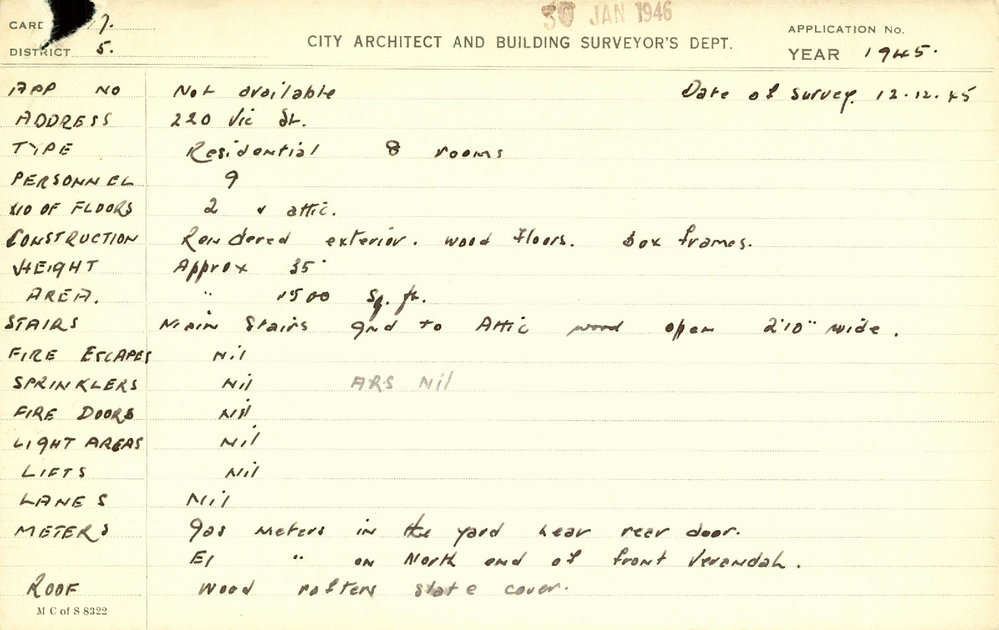 30 JAN 1946
CARD 17.
DISTRICT 5.
CITY ARCHITECT AND BUILDING SURVEYOR'S DEPT.
APPLICATION No.
YEAR 1945.
APP NO Not available Date of survey. 12.12.45
ADDRESS 220 Vic St.
TYPE Residential 8 rooms
PERSONNEL 9
NO OF FLOORS 2 & attic.
CONSTRUCTION Rendered exterior. wood floors. Box frames.
HEIGHT Approx 35'
AREA. " 1500 Sq. ft.
STAIRS Main Stairs gnd to Attic wood open 2'10" wide.
FIRE ESCAPES Nil
SPRINKLERS Nil ARS Nil
FIRE DOORS Nil
LIGHT AREAS Nil
LIFTS Nil
LANES Nil
METERS gas meters in the yard near rear door.
El " on North end of front verandah.
ROOF Wood rafters slate cover.
M C of S 8322